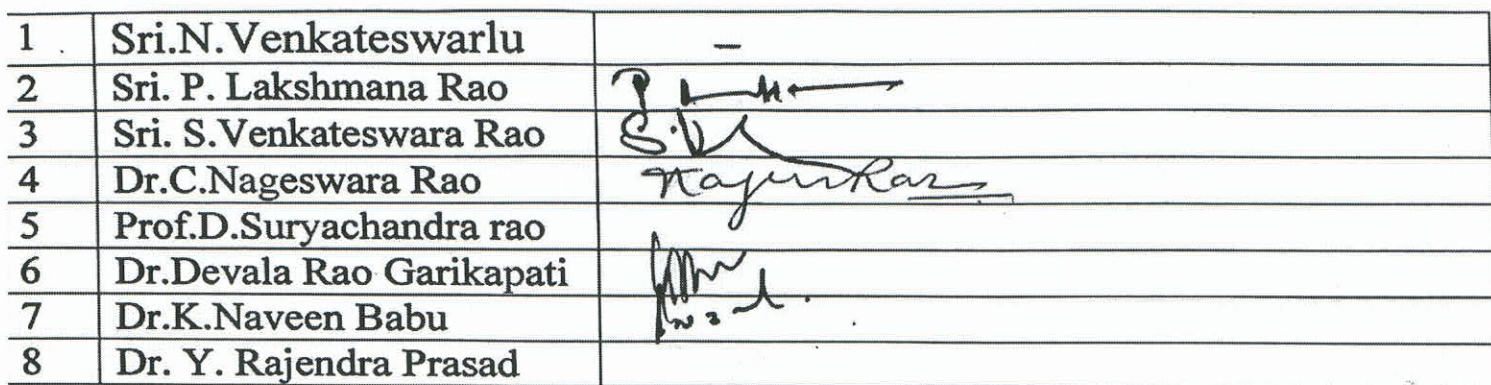 1 Sri.N.Venkateswarlu –
2 Sri. P. Lakshmana Rao
3 Sri. S.Venkateswara Rao
4 Dr.C.Nageswara Rao
5 Prof.D.Suryachandra rao
6 Dr.Devala Rao Garikapati
7 Dr.K.Naveen Babu
8 Dr. Y. Rajendra Prasad